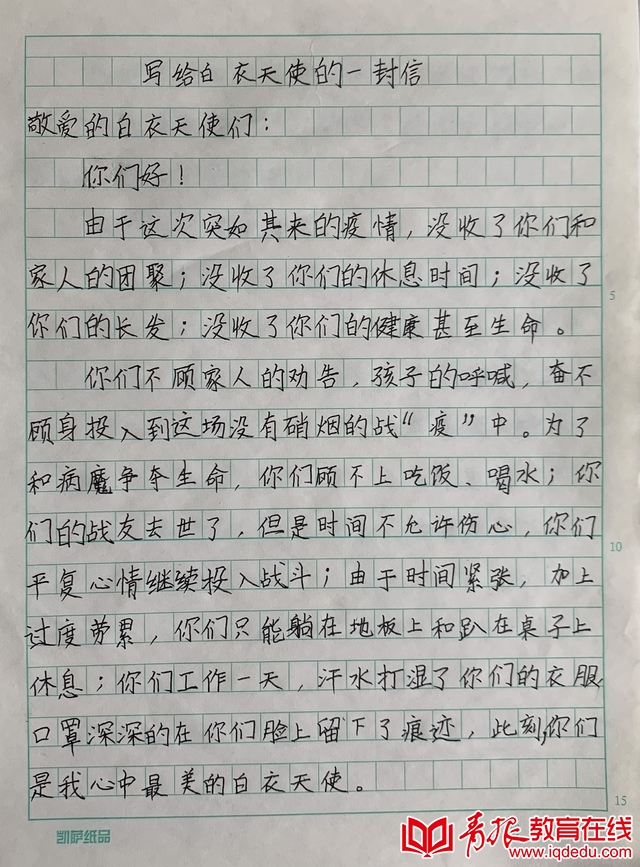 写给白衣天使的一封信
敬爱的白衣天使们：
你们好！
由于这次突如其来的疫情，没收了你们和
家人的团聚；没收了你们的休息时间；没收了
你们的长发；没收了你们的健康甚至生命。
你们不顾家人的劝告，孩子的呼喊，奋不
顾身投入到这场没有硝烟的战“疫”中。为了
和病魔争夺生命，你们顾不上吃饭、喝水；你
们的战友去世了，但是时间不允许伤心，你们
平复心情继续投入战斗；由于时间紧张，加上
过度劳累，你们只能躺在地板上和趴在桌子上
休息；你们工作一天，汗水打湿了你们的衣服，
口罩深深的在你们脸上留下了痕迹，此刻，你们
是我心中最美的白衣天使。
5
10
15
凯萨纸品
青报教育在线
www.iqdedu.com